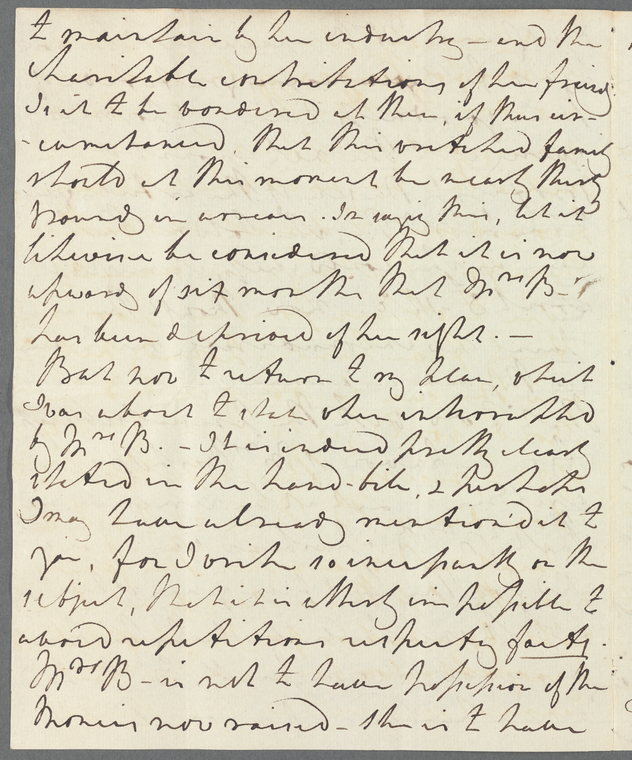 to maintain by her industry – and the
charitable contributions of her friends.
Is it to be wondered at then, if thus cir-
-cumstanced, that this wretched family
should at this moment be nearly thirty
pounds in arrears. In saying this, let it
likewise be considered that it is now
upwards of six months that Mrs B–
has been deprived of her sight. –
But now to return to my plan, which
I was about to state when interrupted
by Mrs B. – It is indeed pretty clearly
stated in the hand-bill, & perhaps
I may have already mention'd it to
you, for I write so incessantly on the
subject, that it is utterly impossible to
avoid repetitions respecting facts.
Mrs B – is not to have possession of the
Monies now raised – she is to have